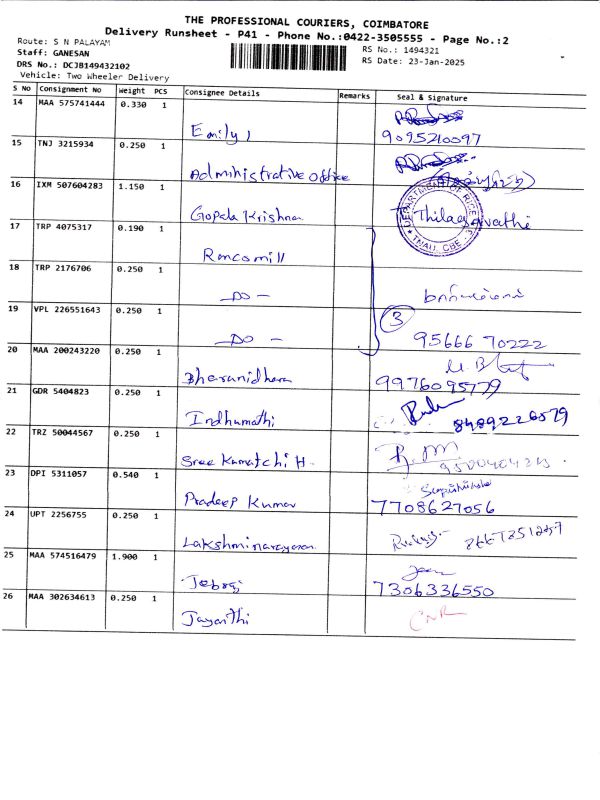 THE PROFESSIONAL COURIERS, COIMBATORE
Delivery Runsheet - P41 - Phone No.:0422-3505555 - Page No.:2
Route: S N PALAYAM
Staff: GANESAN
DRS No.: DCJB149432102
Vehicle: Two Wheeler Delivery
RS No.: 1494321
RS Date: 23-Jan-2025
S No Consignment No Weight PCS Consignee Details Remarks Seal & Signature
14 MAA 575741444 0.330 1 Emily 9095210097
15 TNJ 3215934 0.250 1 Administrative Office
16 IXM 507604283 1.150 1 Gopala Krishna Thilagavathi
DEPARTMENT OF RICE
TNAU, CBE - 3
17 TRP 4075317 0.190 1 Roncomill
18 TRP 2176706 0.250 1 — DO —
19 VPL 226551643 0.250 1 — DO — 3 95666 70222
20 MAA 200243220 0.250 1 Bharanidhara 9976095779
21 GDR 5404823 0.250 1 Indhumathi 8489226579
22 TRZ 50044567 0.250 1 Sree Kamatchi H
23 DPI 5311057 0.540 1 Pradeep Kumar 7708627056
24 UPT 2256755 0.250 1 Lakshminarayanan
25 MAA 574516479 1.900 1 Jebraj 7306336550
26 MAA 302634613 0.250 1 Jayanthi CNR